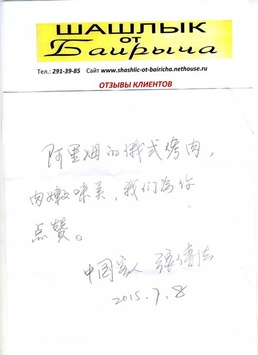 ШАШЛЫК
от
Баирыча
Тел.: 291-39-85 Сайт www.shashlic-ot-bairicha.nethouse.ru
ОТЗЫВЫ КЛИЕНТОВ
阿里姆的俄式烤肉,
肉嫩味美,我们为你
点赞。
中国客人
2015.7.8